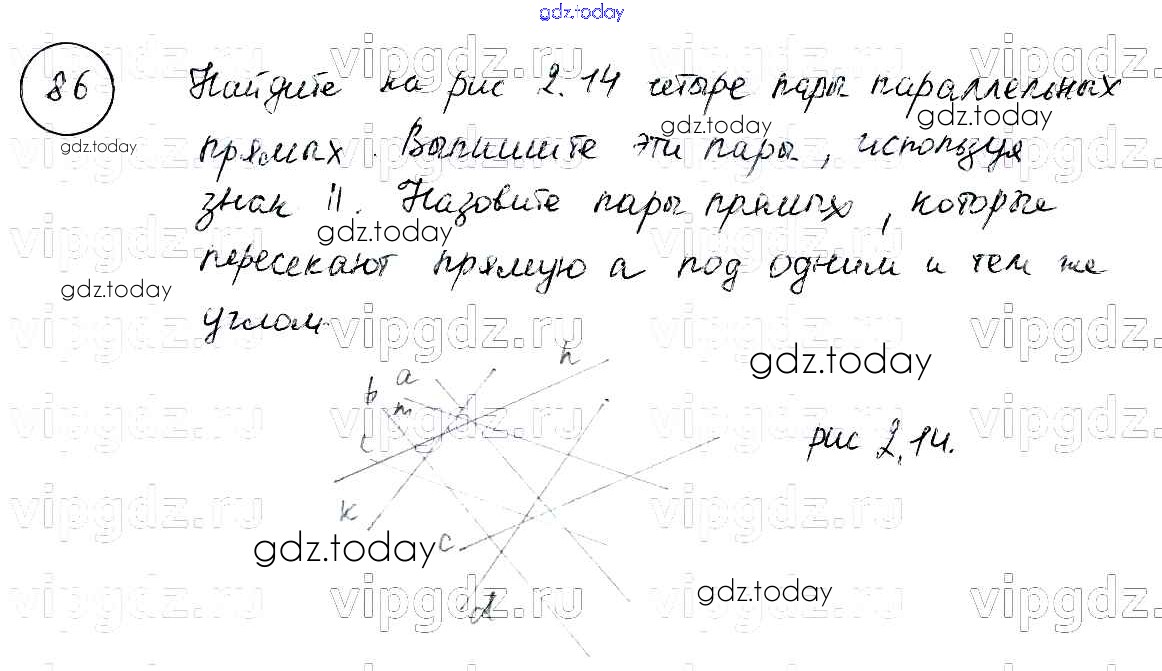 gdz.today
86
Найдите на рис 2.14 четыре пары параллельных
прямых. Выпишите эти пары, используя
знак ||. Назовите пары прямых, которые
пересекают прямую a под одним и тем же
углом.
h
a
b
m
l
k
c
d
рис 2.14.
vipgdz.ru vipgdz.ru vipgdz.ru vipgdz.ru
gdz.today gdz.today gdz.today
gdz.today
gdz.today
gdz.today
gdz.today
gdz.today